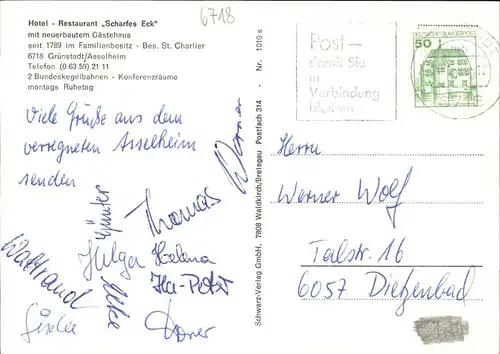 Hotel - Restaurant „Scharfes Eck"
mit neuerbautem Gästehaus
seit 1789 im Familienbesitz - Bes. St. Charlier
6718 Grünstadt/Asselheim
Telefon (0 63 59) 21 11
2 Bundeskegelbahnen - Konferenzräume
montags Ruhetag
6718
Viele Grüße aus dem
verregneten Asselheim
senden
Werner
Thomas
Günter
Helga
Elke
Helena
Ha-Peter
Waltraud
Gisela
Schwarz-Verlag GmbH. 7808 Waldkirch/Breisgau Postfach 314 - Nr. 1010 s
Post –
damit Sie
in
Verbindung
bleiben
50
DEUTSCHE BUNDESPOST
Herrn
Werner Wolf
Talstr. 16
6057 Dietzenbach